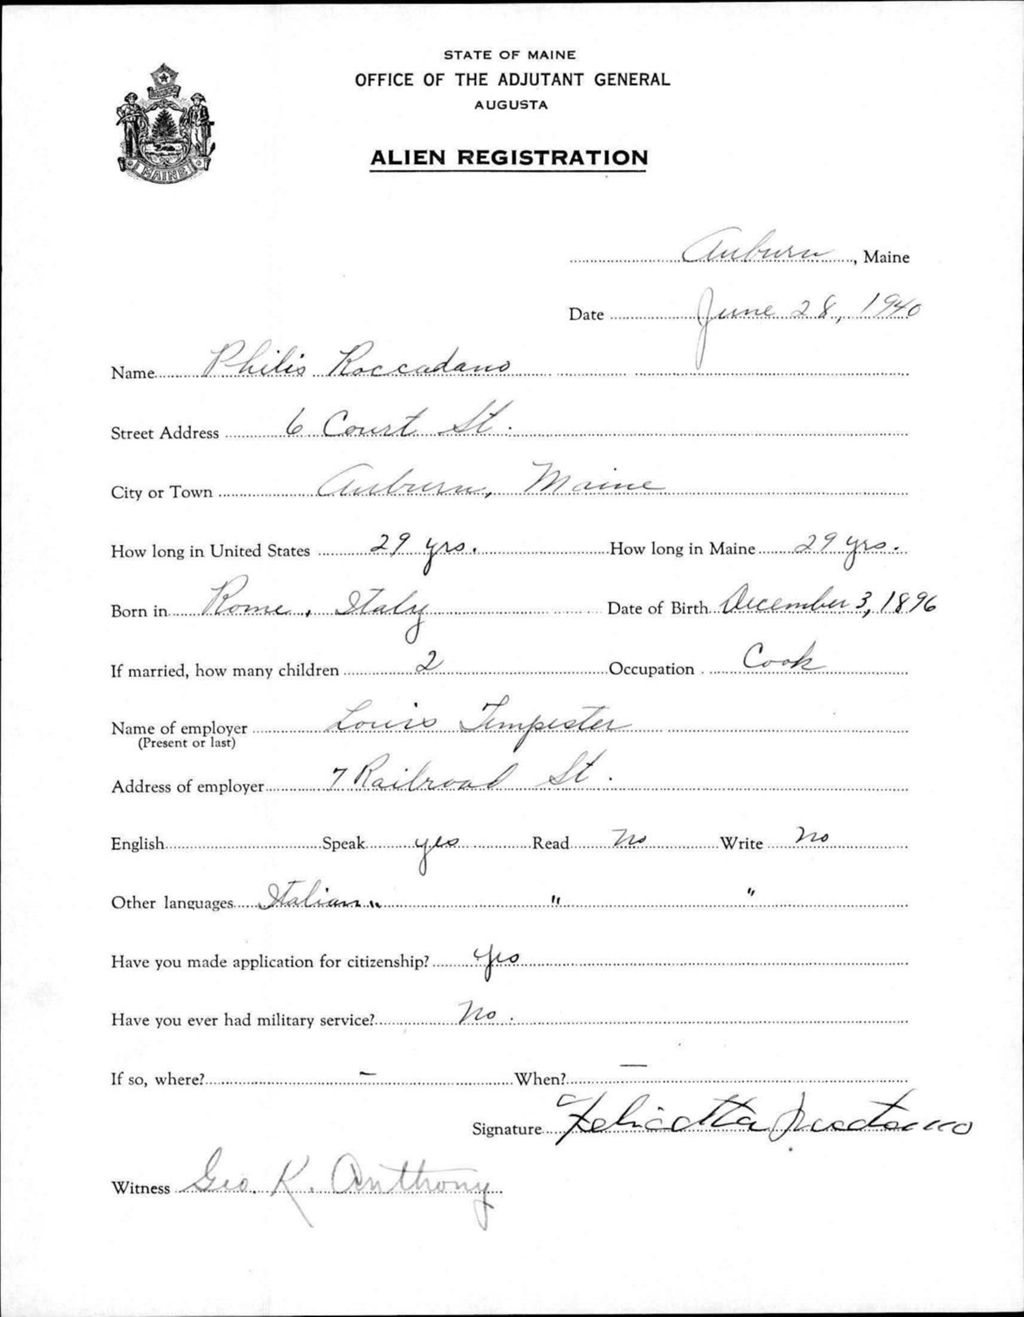 STATE OF MAINE
OFFICE OF THE ADJUTANT GENERAL
AUGUSTA
ALIEN REGISTRATION
MAINE
Auburn, Maine
Date June 28, 1940
Name Philis Roccadano
Street Address 6 Court St.
City or Town Auburn, Maine
How long in United States 29 yrs. How long in Maine 29 yrs.
Born in Rome, Italy Date of Birth December 3, 1896
If married, how many children 2 Occupation Cook
Name of employer Louis Tempester
(Present or last)
Address of employer 7 Railroad St.
English Speak yes Read No Write No
Other languages Italian " " "
Have you made application for citizenship? Yes
Have you ever had military service? No.
If so, where? - When? —
Signature
Witness Geo. K. Anthony